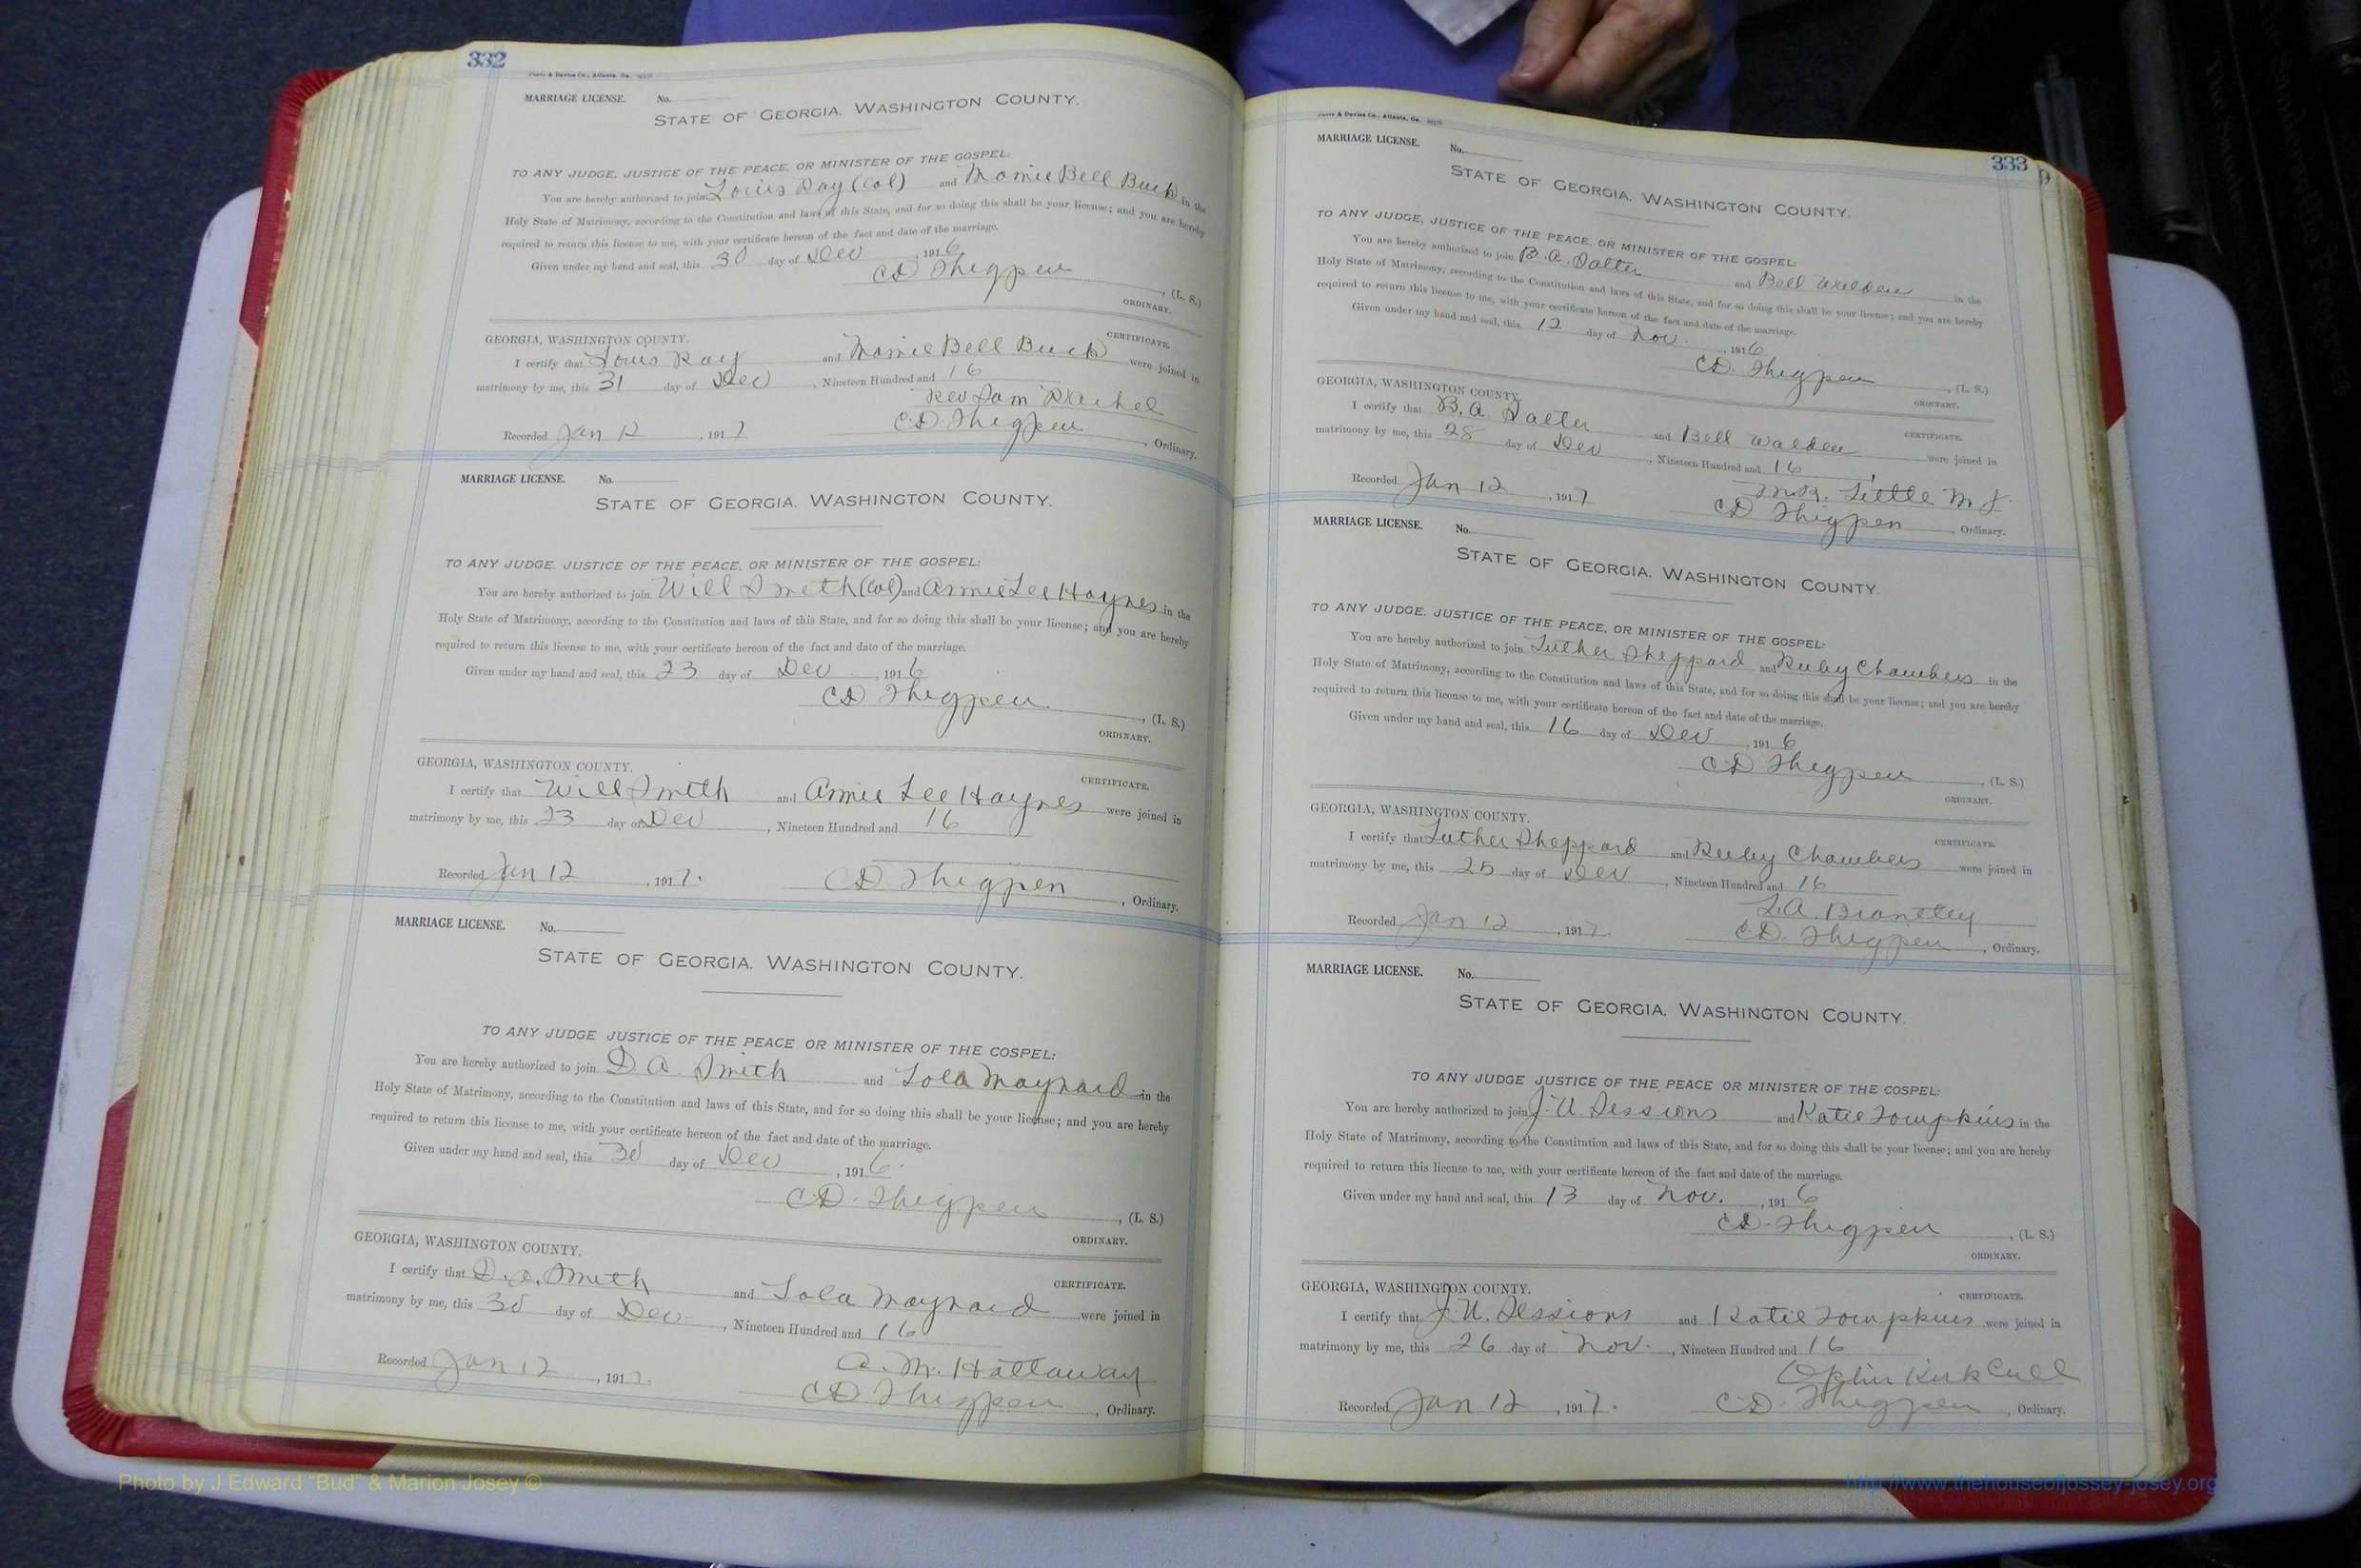 332
MARRIAGE LICENSE. No.
STATE OF GEORGIA, WASHINGTON COUNTY.
TO ANY JUDGE, JUSTICE OF THE PEACE, OR MINISTER OF THE GOSPEL:
You are hereby authorized to join Louis Ray (Col) and Mamie Bell Buck in the
Holy State of Matrimony, according to the Constitution and laws of this State, and for so doing this shall be your license; and you are hereby
required to return this license to me, with your certificate hereon of the fact and date of the marriage.
Given under my hand and seal, this 30 day of Dec, 1916
CD Thigpen, (L. S.)
ORDINARY.
GEORGIA, WASHINGTON COUNTY.
CERTIFICATE.
I certify that Louis Ray and Mamie Bell Buck were joined in
matrimony by me, this 31 day of Dec, Nineteen Hundred and 16
Rev Sam Rachel
Recorded Jan 12, 1917 C.D. Thigpen, Ordinary.
MARRIAGE LICENSE. No.
STATE OF GEORGIA, WASHINGTON COUNTY.
TO ANY JUDGE, JUSTICE OF THE PEACE, OR MINISTER OF THE GOSPEL:
You are hereby authorized to join Will Smith (Col) and Annie Lee Haynes in the
Holy State of Matrimony, according to the Constitution and laws of this State, and for so doing this shall be your license; and you are hereby
required to return this license to me, with your certificate hereon of the fact and date of the marriage.
Given under my hand and seal, this 23 day of Dec, 1916
CD Thigpen, (L. S.)
ORDINARY.
GEORGIA, WASHINGTON COUNTY.
CERTIFICATE.
I certify that Will Smith and Annie Lee Haynes were joined in
matrimony by me, this 23 day of Dec, Nineteen Hundred and 16
Recorded Jan 12, 1917. CD Thigpen, Ordinary.
MARRIAGE LICENSE. No.
STATE OF GEORGIA, WASHINGTON COUNTY.
TO ANY JUDGE JUSTICE OF THE PEACE OR MINISTER OF THE GOSPEL:
You are hereby authorized to join D A. Smith and Lola Maynard in the
Holy State of Matrimony, according to the Constitution and laws of this State, and for so doing this shall be your license; and you are hereby
required to return this license to me, with your certificate hereon of the fact and date of the marriage.
Given under my hand and seal, this 30 day of Dec, 1916.
CD. Thigpen, (L. S.)
ORDINARY.
GEORGIA, WASHINGTON COUNTY.
CERTIFICATE.
I certify that D. A. Smith and Lola Maynard were joined in
matrimony by me, this 30 day of Dec., Nineteen Hundred and 16
A. M. Hattaway
Recorded Jan 12, 1917. CD Thigpen, Ordinary.
333
MARRIAGE LICENSE. No.
STATE OF GEORGIA, WASHINGTON COUNTY.
TO ANY JUDGE, JUSTICE OF THE PEACE, OR MINISTER OF THE GOSPEL:
You are hereby authorized to join B. A. Salter and Bell Walden in the
Holy State of Matrimony, according to the Constitution and laws of this State, and for so doing this shall be your license; and you are hereby
required to return this license to me, with your certificate hereon of the fact and date of the marriage.
Given under my hand and seal, this 12 day of Nov., 1916
CD. Thigpen, (L. S.)
ORDINARY.
GEORGIA, WASHINGTON COUNTY.
CERTIFICATE.
I certify that B. A. Salter and Bell Walden were joined in
matrimony by me, this 28 day of Dec, Nineteen Hundred and 16
M.R. Little M G.
Recorded Jan 12, 1917 CD Thigpen, Ordinary.
MARRIAGE LICENSE. No.
STATE OF GEORGIA, WASHINGTON COUNTY.
TO ANY JUDGE, JUSTICE OF THE PEACE, OR MINISTER OF THE GOSPEL:
You are hereby authorized to join Luther Sheppard and Ruby Chambers in the
Holy State of Matrimony, according to the Constitution and laws of this State, and for so doing this shall be your license; and you are hereby
required to return this license to me, with your certificate hereon of the fact and date of the marriage.
Given under my hand and seal, this 16 day of Dec, 1916
C.D. Thigpen, (L. S.)
ORDINARY.
GEORGIA, WASHINGTON COUNTY.
CERTIFICATE.
I certify that Luther Sheppard and Ruby Chambers were joined in
matrimony by me, this 25 day of Dec, Nineteen Hundred and 16
L.A. Brantley
Recorded Jan 12, 1917 C.D. Thigpen, Ordinary.
MARRIAGE LICENSE. No.
STATE OF GEORGIA, WASHINGTON COUNTY.
TO ANY JUDGE JUSTICE OF THE PEACE OR MINISTER OF THE GOSPEL:
You are hereby authorized to join J. U. Sessions and Katie Tompkins in the
Holy State of Matrimony, according to the Constitution and laws of this State, and for so doing this shall be your license; and you are hereby
required to return this license to me, with your certificate hereon of the fact and date of the marriage.
Given under my hand and seal, this 13 day of Nov., 1916
CD. Thigpen, (L. S.)
ORDINARY.
GEORGIA, WASHINGTON COUNTY.
CERTIFICATE.
I certify that J. U. Sessions and Katie Tompkins were joined in
matrimony by me, this 26 day of Nov., Nineteen Hundred and 16
Recorded Jan 12, 1917. C D. Thigpen, Ordinary.
Photo by J Edward "Bud" & Marion Josey ©
http://www.thehouseofjossey-josey.org